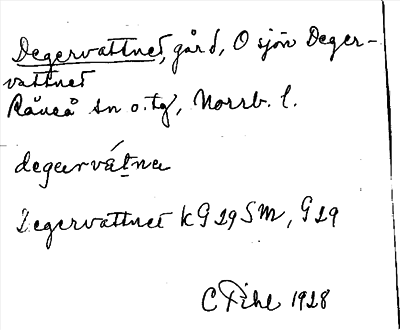 Degervattnet, gård, O sjön Deger-
vattnet
Råneå sn o. tg, Norrb. l.
degarvátna
Degervattnet kG29SM, G29
C Pihl 1928